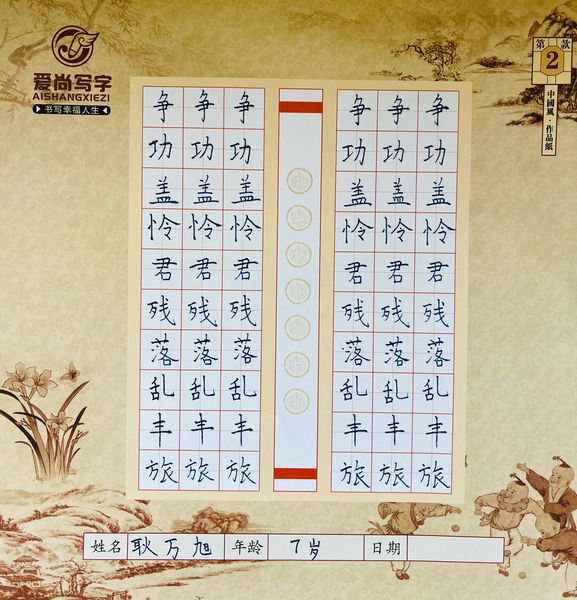 爱尚写字
AISHANGXIEZI
书写幸福人生
第 款
2
中國風·作品紙
争 争 争 争 争 争
功 功 功 功 功 功
盖 盖 盖 盖 盖 盖
怜 怜 怜 怜 怜 怜
君 君 君 君 君 君
残 残 残 残 残 残
落 落 落 落 落 落
乱 乱 乱 乱 乱 乱
丰 丰 丰 丰 丰 丰
旅 旅 旅 旅 旅 旅
姓名 耿万旭 年龄 7岁 日期